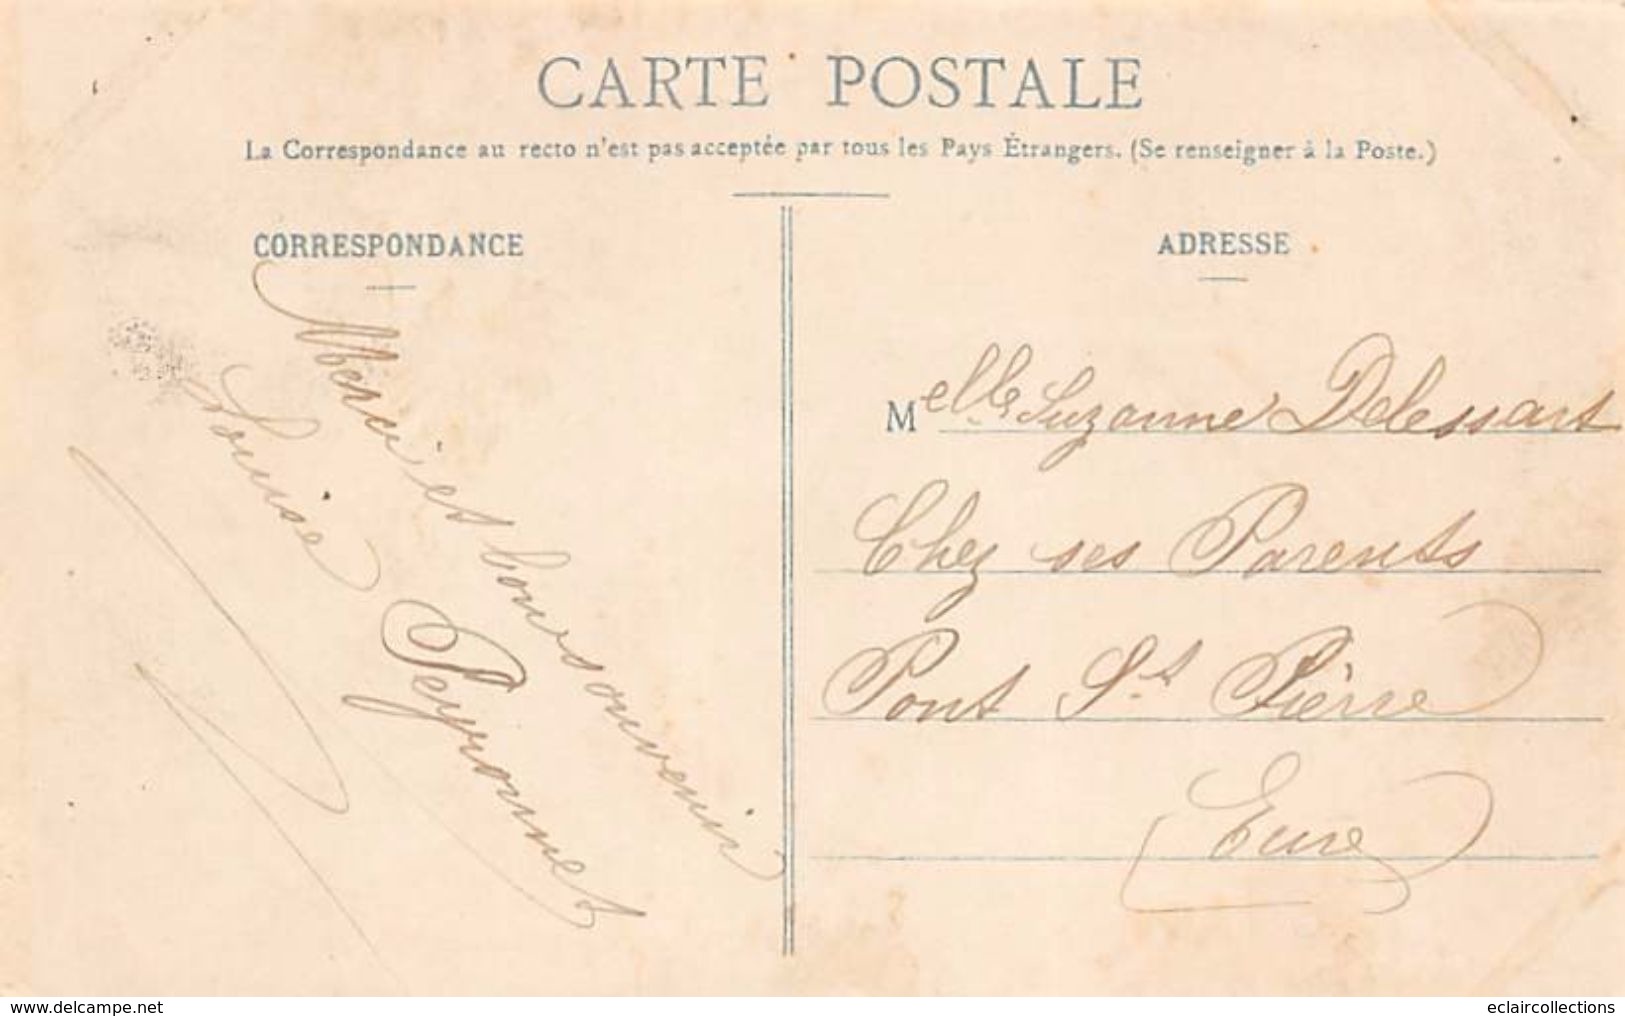 CARTE POSTALE
La Correspondance au recto n'est pas acceptée par tous les Pays Étrangers. (Se renseigner à la Poste.)
CORRESPONDANCE
Merci et bon souvenir
Louise Peyronnet
ADRESSE
Melle Suzanne Delessart
Chez ses Parents
Pont St Pierre
Eure
www.delcampe.net
eclaircollections